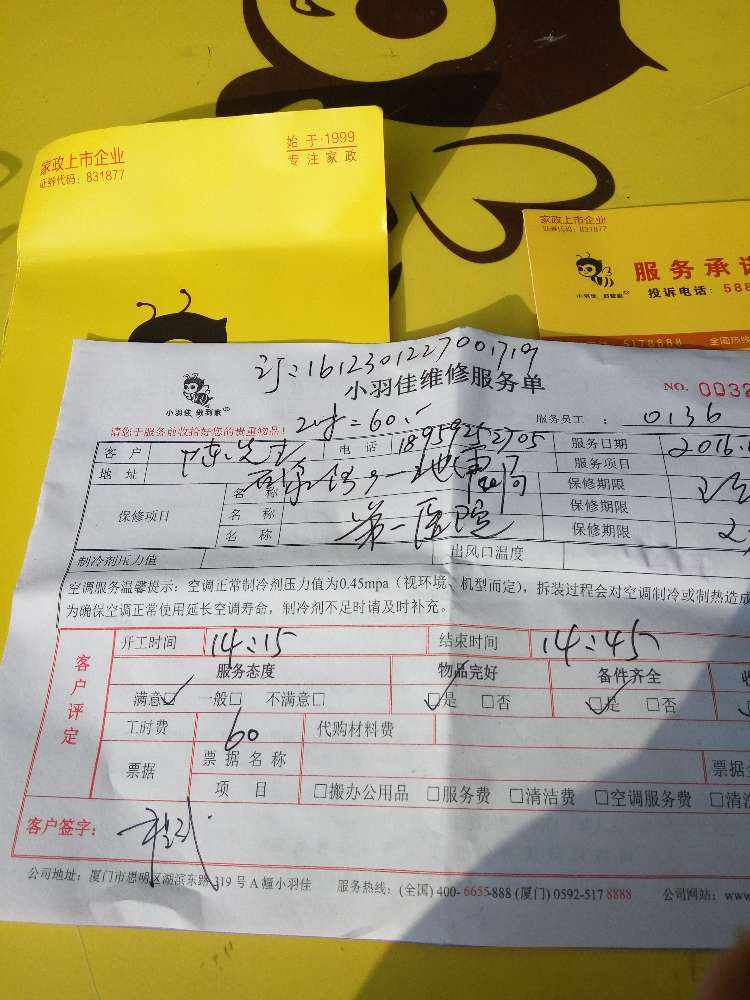 家政上市企业
证券代码：831877
始于·1999
专注家政
家政上市企业
证券代码：831877
服务承诺
小羽佳 做到家
投诉电话：588
5178888 全国热线
订：1612301227001719
小羽佳 做到家
小羽佳维修服务单
NO. 0032
请您于服务前收拾好您的贵重物品！
2时=60
服务员工： 0136
客户 陈先生 电话 18959252705 服务日期 2016.
地址 服务项目
保修项目 名称 保修期限
名称 第一医院 保修期限
名称 保修期限
制冷剂压力值 出风口温度
空调服务温馨提示：空调正常制冷剂压力值为0.45mpa（视环境、机型而定），拆装过程会对空调制冷或制热造成
为确保空调正常使用延长空调寿命，制冷剂不足时请及时补充。
客户评定
开工时间 14:15 结束时间 14:45
服务态度 物品完好 备件齐全
满意☑ 一般□ 不满意□ ☑是 □否 ☑是 □否
工时费 60 代购材料费
票据 票据名称 票据
项目 □搬办公用品 □服务费 □清洁费 □空调服务费 □清洁
客户签字：
公司地址：厦门市思明区湖滨东路319号A幢小羽佳 服务热线：(全国) 400-6655-888 (厦门) 0592-517 8888 公司网站：www.